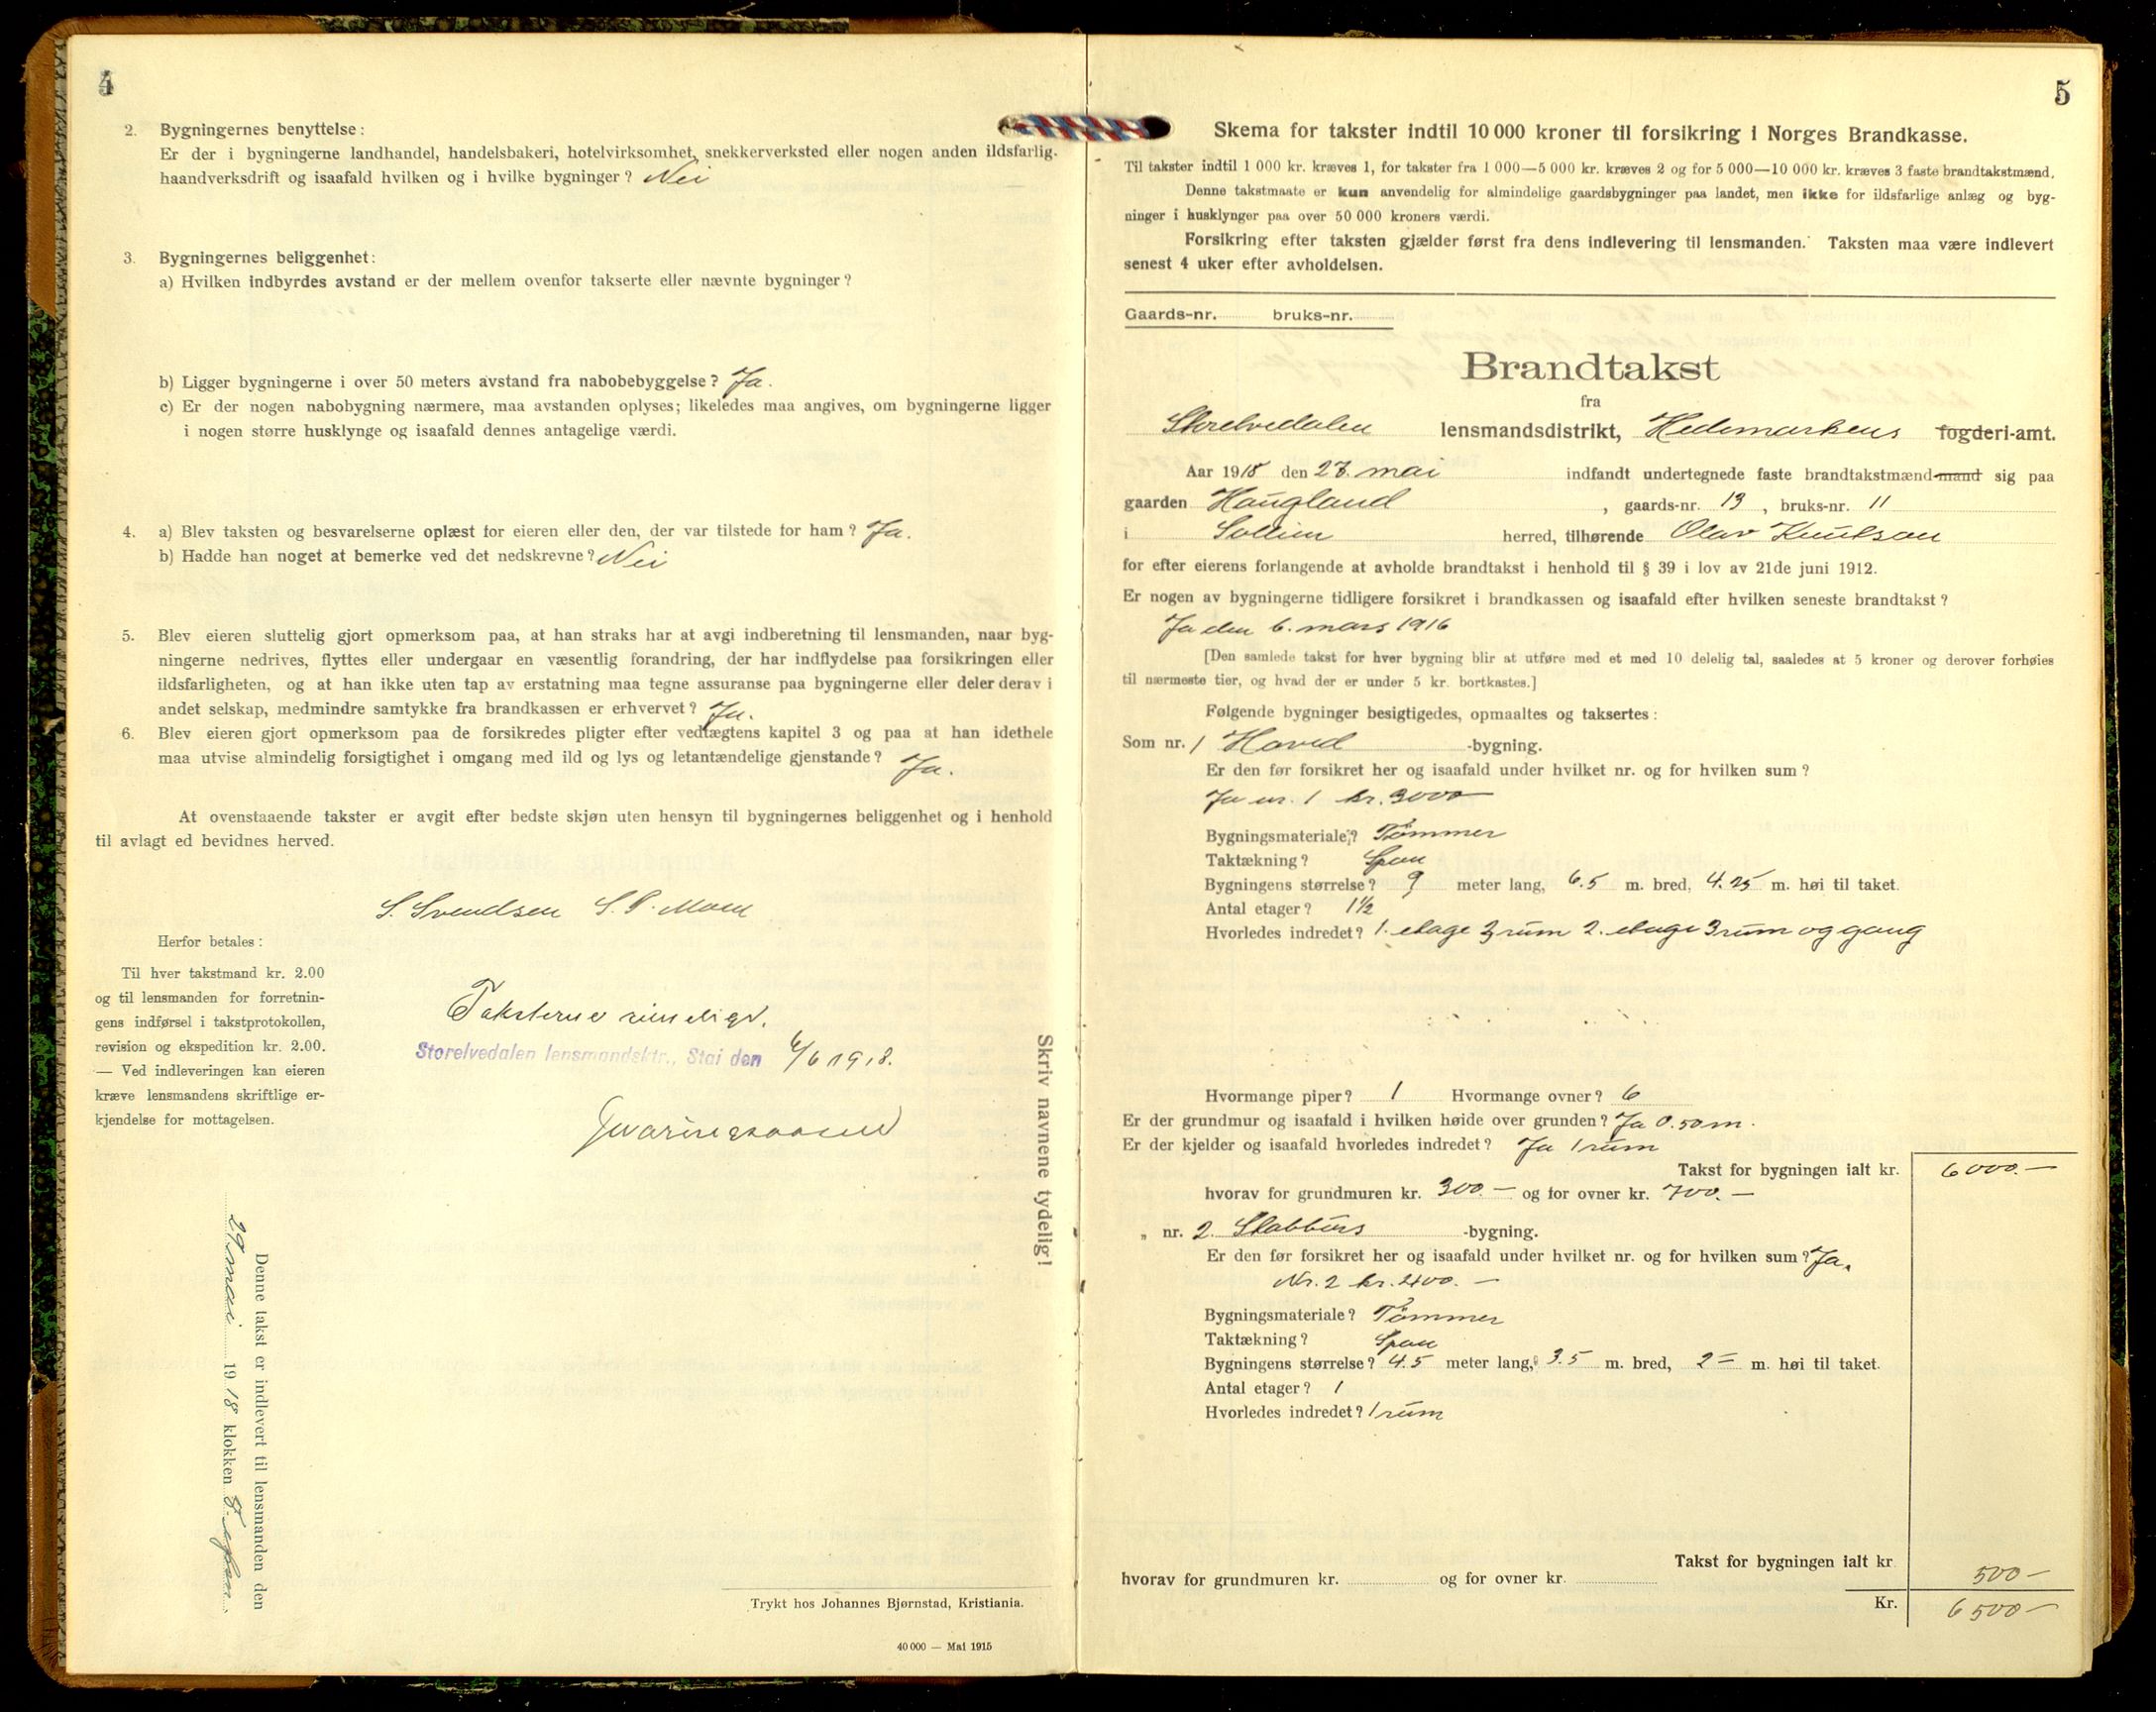 4
2. Bygningernes benyttelse:
Er der i bygningerne landhandel, handelsbakeri, hotelvirksomhet, snekkerverksted eller nogen anden ildsfarlig.
haandverksdrift og isaafald hvilken og i hvilke bygninger? Nei
3. Bygningernes beliggenhet:
a) Hvilken indbyrdes avstand er der mellem ovenfor takserte eller nævnte bygninger?
b) Ligger bygningerne i over 50 meters avstand fra nabobebyggelse? Ja.
c) Er der nogen nabobygning nærmere, maa avstanden oplyses; likeledes maa angives, om bygningerne ligger
i nogen større husklynge og isaafald dennes antagelige værdi.
4. a) Blev taksten og besvarelserne oplæst for eieren eller den, der var tilstede for ham? Ja.
b) Hadde han noget at bemerke ved det nedskrevne? Nei
5. Blev eieren sluttelig gjort opmerksom paa, at han straks har at avgi indberetning til lensmanden, naar byg-
ningerne nedrives, flyttes eller undergaar en væsentlig forandring, der har indflydelse paa forsikringen eller
ildsfarligheten, og at han ikke uten tap av erstatning maa tegne assuranse paa bygningerne eller deler derav i
andet selskap, medmindre samtykke fra brandkassen er erhvervet? Ja.
6. Blev eieren gjort opmerksom paa de forsikredes pligter efter vedtægtens kapitel 3 og paa at han idethele
maa utvise almindelig forsigtighet i omgang med ild og lys og letantændelige gjenstande? Ja.
At ovenstaaende takster er avgit efter bedste skjøn uten hensyn til bygningernes beliggenhet og i henhold
til avlagt ed bevidnes herved.
S. Svendsen S. P. Moen
Herfor betales:
Til hver takstmand kr. 2.00
og til lensmanden for forretnin-
gens indførsel i takstprotokollen,
revision og ekspedition kr. 2.00.
— Ved indleveringen kan eieren
kræve lensmandens skriftlige er-
kjendelse for mottagelsen.
Taksterne rimelige.
Storelvedalen lensmandsktr., Stai den 6/6 1918.
Skriv navnene tydelig!
Denne takst er indlevert til lensmanden den
29. mai 1918 klokken
Trykt hos Johannes Bjørnstad, Kristiania.
40 000 — Mai 1915
5
Skema for takster indtil 10 000 kroner til forsikring i Norges Brandkasse.
Til takster indtil 1 000 kr. kræves 1, for takster fra 1 000—5 000 kr. kræves 2 og for 5 000—10 000 kr. kræves 3 faste brandtakstmænd.
Denne takstmaate er kun anvendelig for almindelige gaardsbygninger paa landet, men ikke for ildsfarlige anlæg og byg-
ninger i husklynger paa over 50 000 kroners værdi.
Forsikring efter taksten gjælder først fra dens indlevering til lensmanden. Taksten maa være indlevert
senest 4 uker efter avholdelsen.
Gaards-nr. bruks-nr.
Brandtakst
fra
Storelvedalen lensmandsdistrikt, Hedemarkens fogderi-amt.
Aar 1918 den 27. mai indfandt undertegnede faste brandtakstmænd-mand sig paa
gaarden Haugland, gaards-nr. 13, bruks-nr. 11
i Sollien herred, tilhørende Olav Knutson
for efter eierens forlangende at avholde brandtakst i henhold til § 39 i lov av 21de juni 1912.
Er nogen av bygningerne tidligere forsikret i brandkassen og isaafald efter hvilken seneste brandtakst?
Ja den 6. mars 1916
[Den samlede takst for hver bygning blir at utføre med et med 10 delelig tal, saaledes at 5 kroner og derover forhøies
til nærmeste tier, og hvad der er under 5 kr. bortkastes.]
Følgende bygninger besigtigedes, opmaaltes og taksertes:
Som nr. 1 Hoved -bygning.
Er den før forsikret her og isaafald under hvilket nr. og for hvilken sum?
Ja nr. 1 kr. 3000
Bygningsmateriale? Tømmer
Taktækning? Spon
Bygningens størrelse? 9 meter lang, 6.5 m. bred, 4.25 m. høi til taket.
Antal etager? 1½
Hvorledes indredet? 1. etage 3 rum 2. etage 3 rum og gang
Hvormange piper? 1 Hvormange ovner? 6
Er der grundmur og isaafald i hvilken høide over grunden? Ja 0.50 m.
Er der kjelder og isaafald hvorledes indredet? Ja 1 rum
Takst for bygningen ialt kr. 6000.—
hvorav for grundmuren kr. 300.— og for ovner kr. 700.—
„ nr. 2. Stabburs -bygning.
Er den før forsikret her og isaafald under hvilket nr. og for hvilken sum? Ja.
Nr. 2 kr. 400.—
Bygningsmateriale? Tømmer
Taktækning? Spon
Bygningens størrelse? 4.5 meter lang, 3.5 m. bred, 2 = m. høi til taket.
Antal etager? 1
Hvorledes indredet? 1 rum
Takst for bygningen ialt kr 500—
hvorav for grundmuren kr. og for ovner kr.
Kr. 6500—